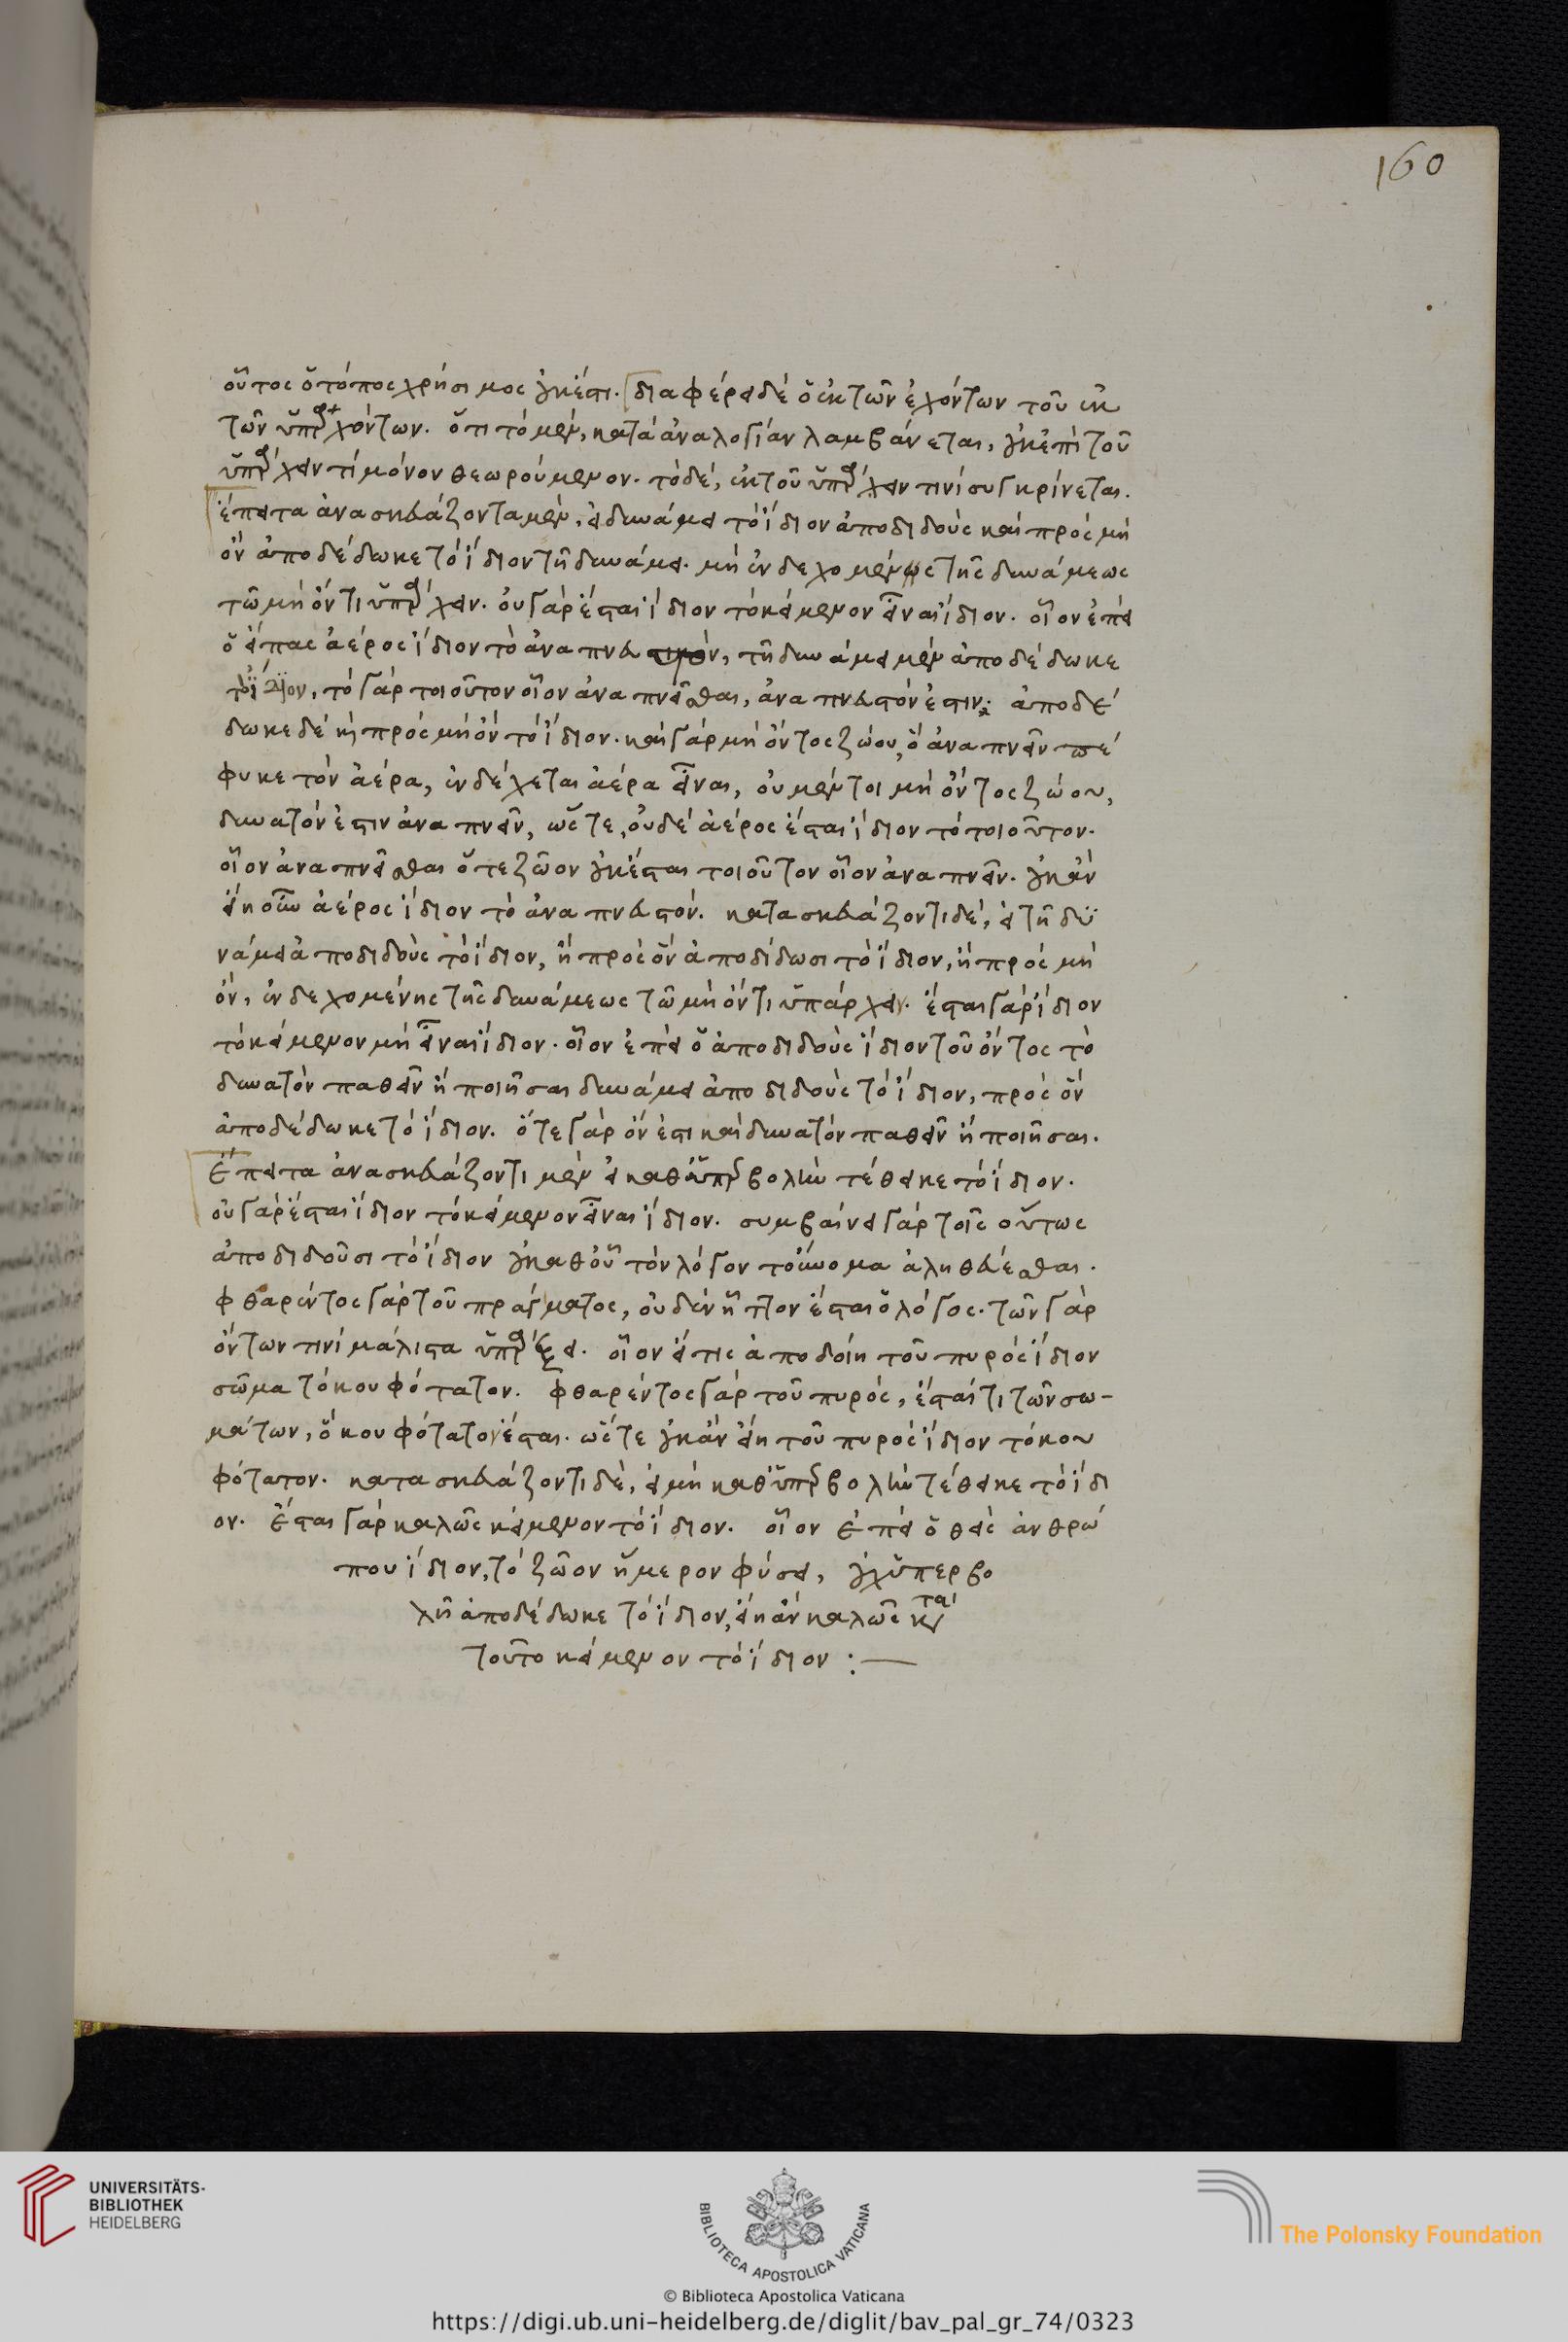 160
οὗτος ὁ τόπος χρήσιμος οὐκ ἔστι. διαφέρει δὲ ὁ ἐκ τῶν ἐχόντων τοῦ ἐκ
τῶν ὑπαρχόντων. ὅτι τὸ μὲν, κατὰ ἀναλογίαν λαμβάνεται, οὐκ ἐπὶ τοῦ
ὑπάρχειν τὶ μόνον θεωρούμενον. τὸ δὲ, ἐκ τοῦ ὑπάρχειν τινὶ συγκρίνεται.
ἔπειτα ἀνασκευάζοντα μὲν, εἰ δυνάμει τὸ ἴδιον ἀποδιδοὺς καὶ πρὸς μὴ
ὂν ἀποδέδωκε τὸ ἴδιον τῆ δυνάμει. μὴ ἐνδεχομένης τῆς δυνάμεως
τῶ μὴ ὄντι ὑπάρχειν. οὐ γὰρ ἔσται ἴδιον τὸ κείμενον εἶναι ἴδιον. οἷον ἐπεὶ
ὁ εἴπας ἀέρος ἴδιον τὸ ἀναπνευστὸν, τῆ δυνάμει μὲν ἀποδέδωκε
τὸ ἴδιον, τὸ γὰρ τοιοῦτον οἷον ἀναπνεῖσθαι, ἀναπνευστόν ἐστιν. ἀποδέ
δωκε δὲ καὶ πρὸς μὴ ὂν τὸ ἴδιον. καὶ γὰρ μὴ ὄντος ζώου, ὃ ἀναπνεῖν πέ
φυκε τὸν ἀέρα, ἐνδέχεται ἀέρα εἶναι, οὐ μέντοι μὴ ὄντος ζώου,
δυνατόν ἐστιν ἀναπνεῖν, ὥστε, οὐδὲ ἀέρος ἔσται ἴδιον τὸ τοιοῦτον.
οἷον ἀναπνεῖσθαι ὅτε ζῶον οὐκ ἔσται τοιοῦτον οἷον ἀναπνεῖν. οὐκ ἂν
εἴη οὖν ἀέρος ἴδιον τὸ ἀναπνευστόν. κατασκευάζοντι δὲ, εἰ τῆ δυ
νάμει ἀποδιδοὺς τὸ ἴδιον, ἢ πρὸς ὂν ἀποδίδωσι τὸ ἴδιον, ἢ πρὸς μὴ
ὂν, ἐνδεχομένης τῆς δυνάμεως τῶ μὴ ὄντι ὑπάρχειν. ἔσται γὰρ ἴδιον
τὸ κείμενον μὴ εἶναι ἴδιον. οἷον ἐπεὶ ὁ ἀποδιδοὺς ἴδιον τοῦ ὄντος τὸ
δυνατὸν παθεῖν ἢ ποιῆσαι δυνάμει ἀποδιδοὺς τὸ ἴδιον, πρὸς ὂν
ἀποδέδωκε τὸ ἴδιον. ὅτε γὰρ ὄν ἐστι καὶ δυνατὸν παθεῖν ἢ ποιῆσαι.
Ἔπειτα ἀνασκευάζοντι μὲν εἰ καθ' ὑπερβολὴν τέθεικε τὸ ἴδιον.
οὐ γὰρ ἔσται ἴδιον τὸ κείμενον εἶναι ἴδιον. συμβαίνει γὰρ τοῖς οὕτως
ἀποδιδοῦσι τὸ ἴδιον οὐ καθ' οὗ τὸν λόγον τοὔνομα ἀληθεύεσθαι.
φθαρέντος γὰρ τοῦ πράγματος, οὐδὲν ἧττον ἔσται ὁ λόγος. τῶν γὰρ
ὄντων τινὶ μάλιστα ὑπάρξει. οἷον εἴ τις ἀποδοίη τοῦ πυρὸς ἴδιον
σῶμα τὸ κουφότατον. φθαρέντος γὰρ τοῦ πυρὸς, ἔσται τι τῶν σω-
μάτων, ὃ κουφότατον ἔσται. ὥστε οὐκ ἂν εἴη τοῦ πυρὸς ἴδιον τὸ κου
φότατον. κατασκευάζοντι δὲ, εἰ μὴ καθ' ὑπερβολὴν τέθεικε τὸ ἴδι
ον. Ἔσται γὰρ καλῶς κείμενον τὸ ἴδιον. οἷον ἐπεὶ ὁ θεὶς ἀνθρώ
που ἴδιον, τὸ ζῶον ἥμερον φύσει, οὐχ ὑπερβο
λῆ ἀποδέδωκε τὸ ἴδιον, εἴη ἂν καλῶς κατὰ
τοῦτο κείμενον τὸ ἴδιον :—
UNIVERSITÄTS-
BIBLIOTHEK
HEIDELBERG
BIBLIOTECA APOSTOLICA VATICANA
The Polonsky Foundation
© Biblioteca Apostolica Vaticana
https://digi.ub.uni-heidelberg.de/diglit/bav_pal_gr_74/0323